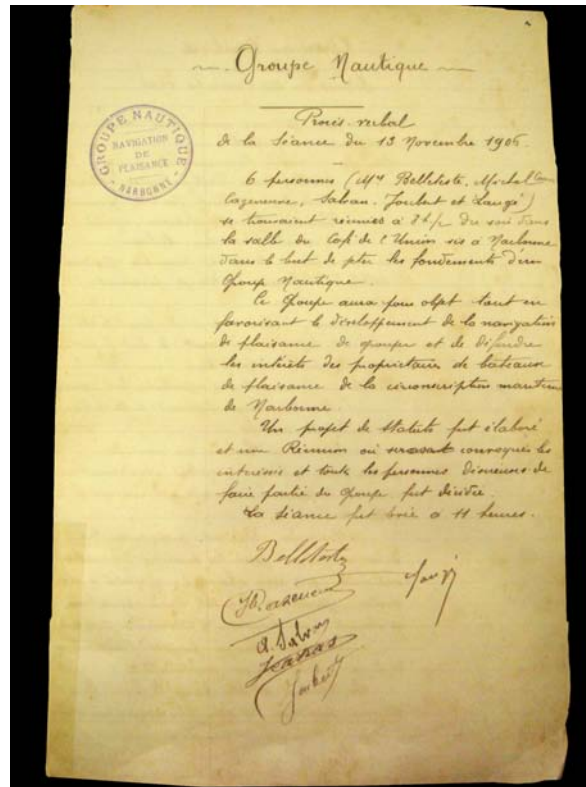 Groupe Nautique
GROUPE NAUTIQUE
NAVIGATION
DE
PLAISANCE
NARBONNE
Procès-verbal
de la Séance du 13 Novembre 1905
6 personnes (MM Belleteste, Michel
Cazeneuve, Salvan, Joubert et Laugé)
se trouvaient réunies à 8 h 1/2 du soir dans
la salle du Café de l'Union sis à Narbonne
dans le but de jeter les fondements d'un
Groupe Nautique.
Ce Groupe aura pour objet tout en
favorisant le développement de la navigation
de plaisance de grouper et de défendre
les intérêts des propriétaires de bateaux
de plaisance de la circonscription maritime
de Narbonne.
Un projet de Statuts fut élaboré
et une Réunion où seraient convoqués les
intéressés et toute les personnes désireuses de
faire partie du Groupe fut décidée.
La séance fut levée à 11 heures.
Belleteste
Laugé
Cazeneuve
A. Salvan
Joubert